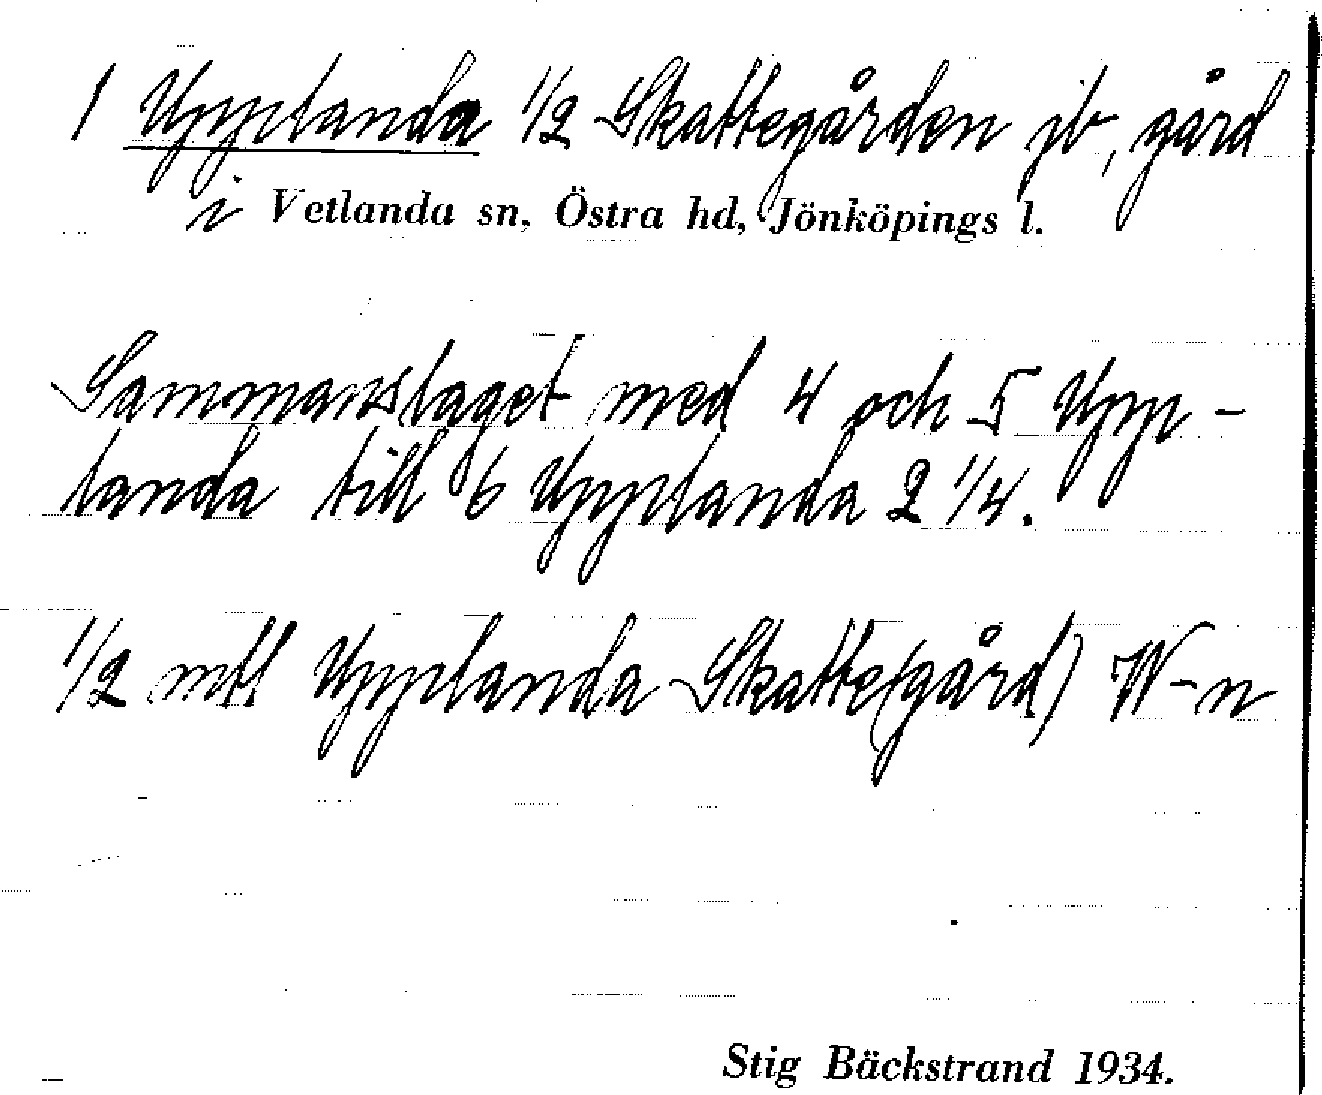 1 Upplanda 1/2 Skattegården jb, gård
i Vetlanda sn, Östra hd, Jönköpings l.
Sammanslaget med 4 och 5 Upp-
landa till 6 Upplanda 2 1/4.
1/2 mtl Upplanda Skatte(gård) W-n
Stig Bäckstrand 1934.